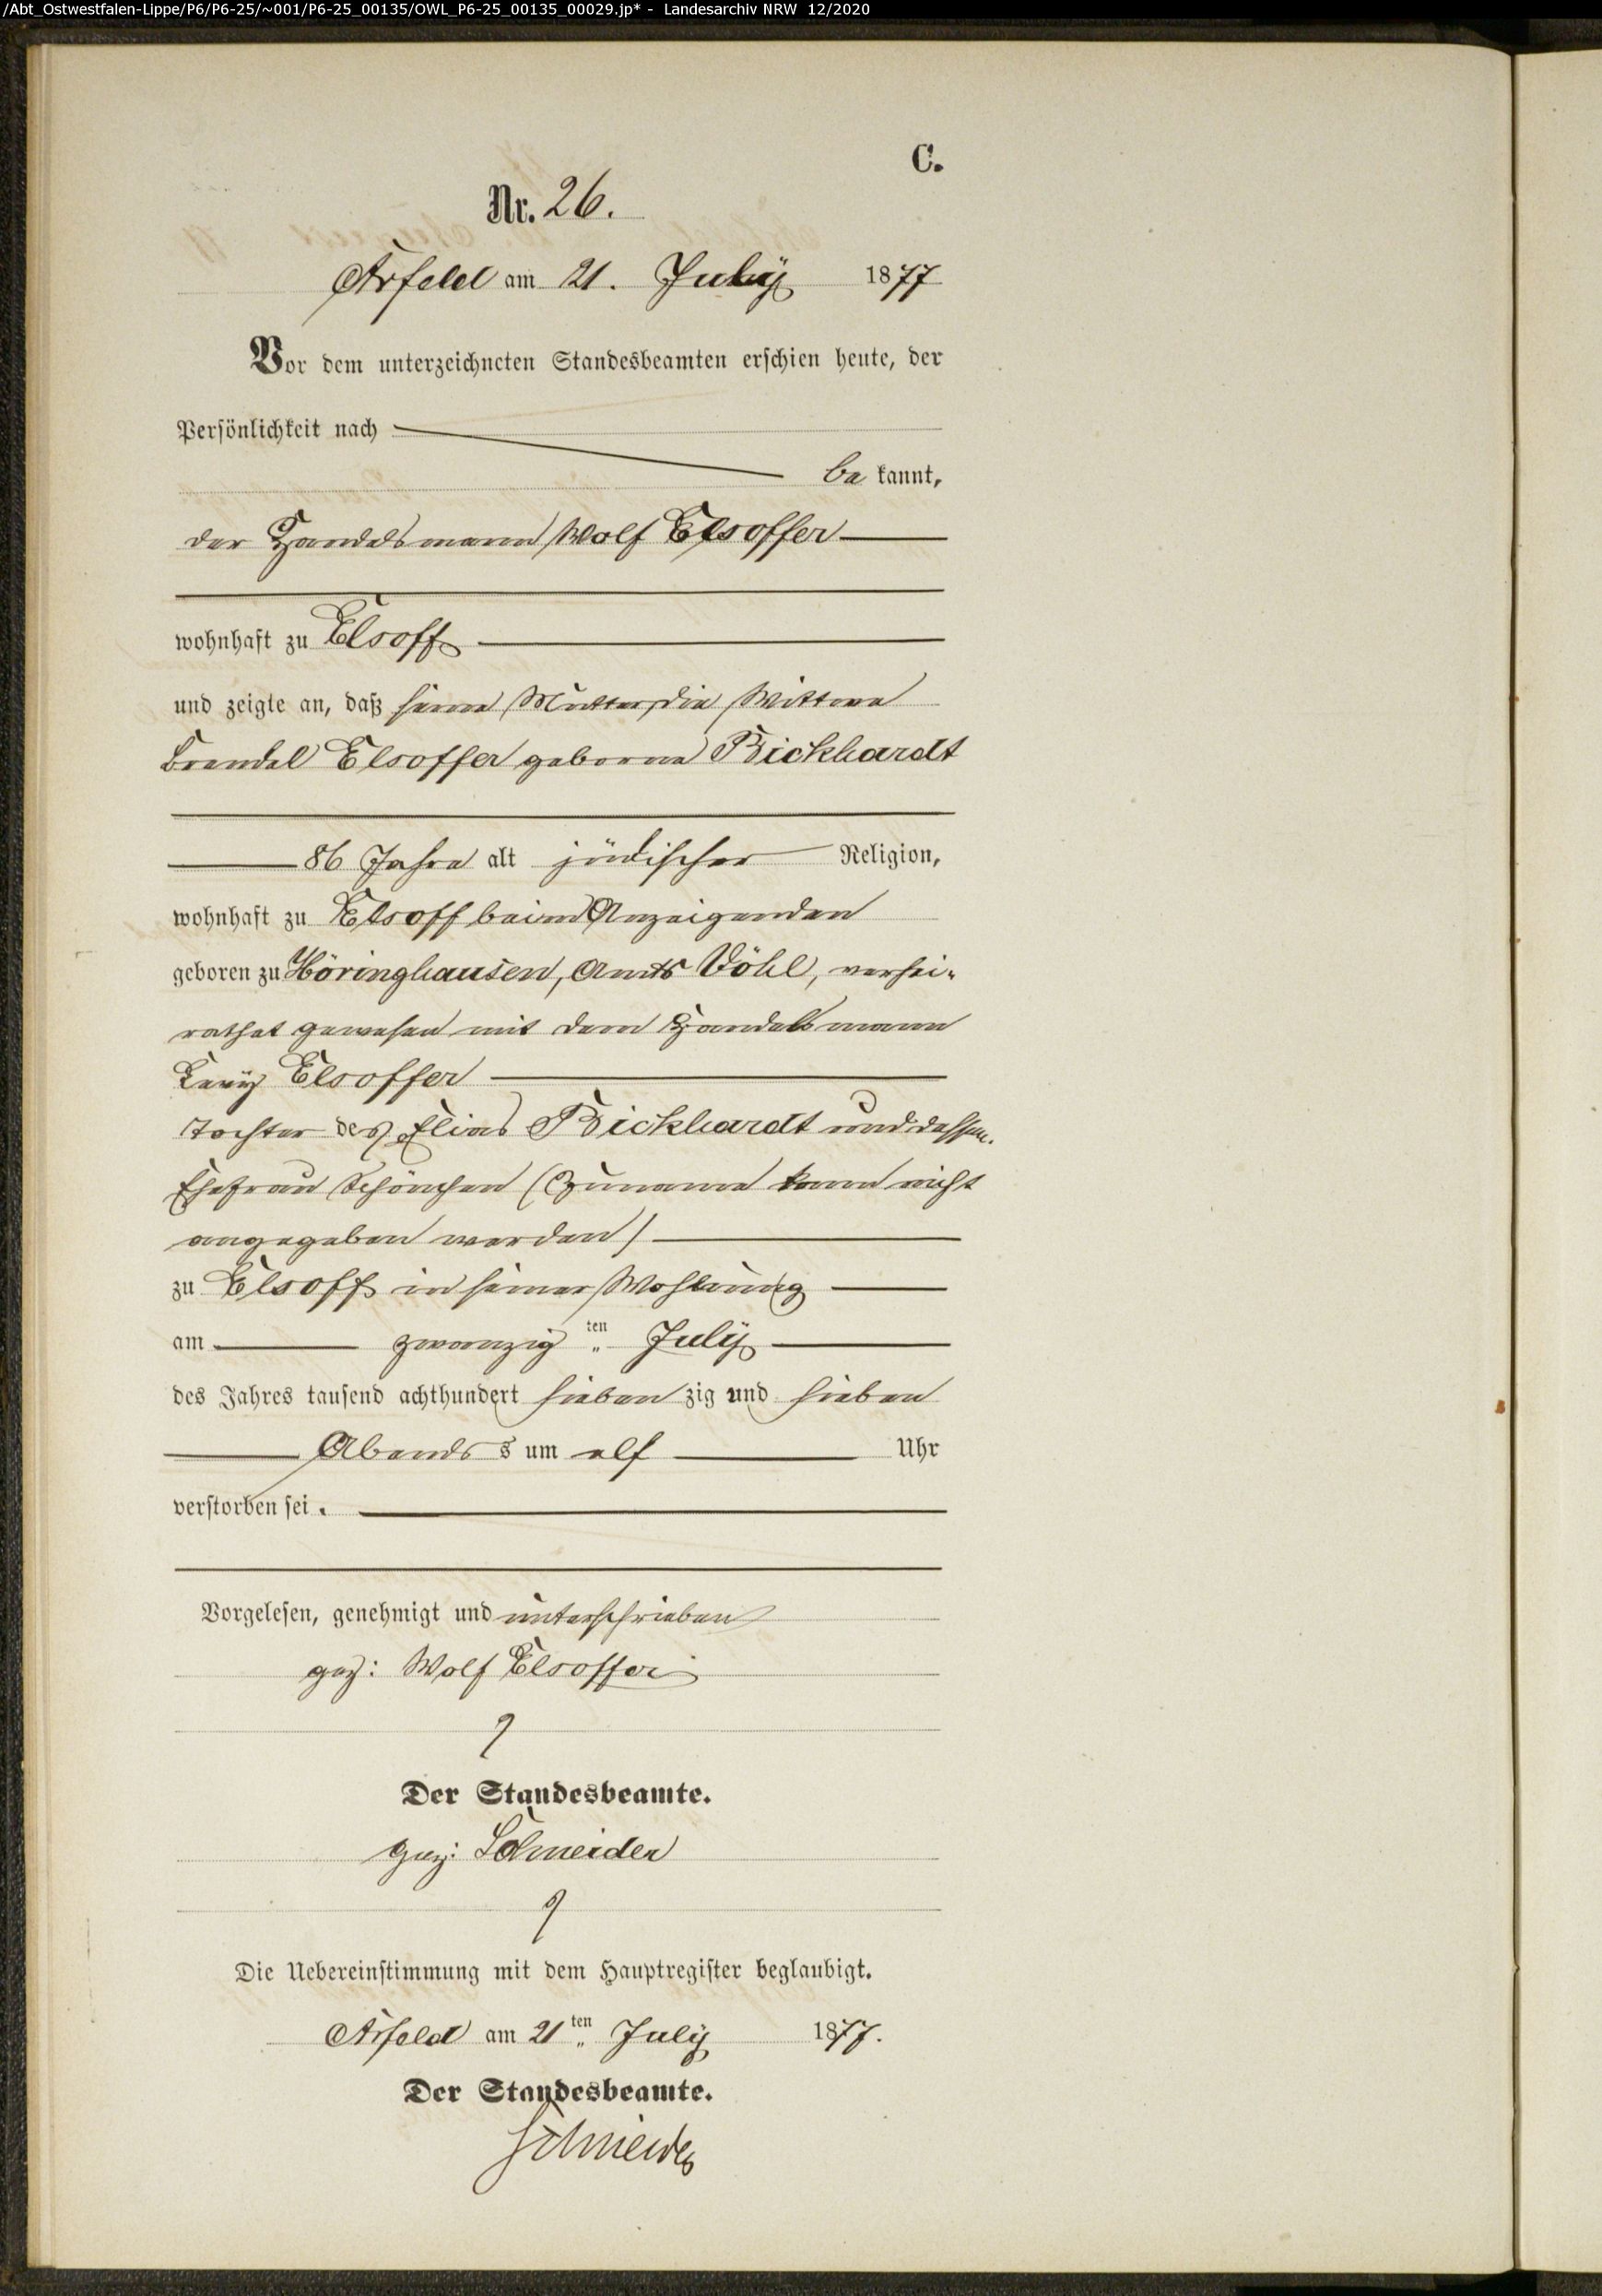 /Abt_Ostwestfalen-Lippe/P6/P6-25/~001/P6-25_00135/OWL_P6-25_00135_00029.jp* - Landesarchiv NRW 12/2020
C.
Nr. 26.
Arfeld am 21. July 1877
Vor dem unterzeichneten Standesbeamten erschien heute, der
Persönlichkeit nach
be kannt,
der Handelsmann Wolf Elsoffer
wohnhaft zu Elsoff
und zeigte an, daß seine Mutter, die Wittwe
Brendel Elsoffer geborne Bickhardt
86 Jahre alt jüdischer Religion,
wohnhaft zu Elsoff beim Anzeigenden
geboren zu Höringhausen, Amts Vöhl, verhei-
rathet gewesen mit dem Handelsmann
Levy Elsoffer
Tochter des Elias Bickhardt und dessen
Ehefrau Schönchen (Zuname kann nicht
angegeben werden)
zu Elsoff in seiner Wohnung
am zwanzig ten July
des Jahres tausend achthundert sieben zig und sieben
Abends s um elf Uhr
verstorben sei.
Vorgelesen, genehmigt und unterschrieben
gez: Wolf Elsoffer
Der Standesbeamte.
gez: Schneider
Die Uebereinstimmung mit dem Hauptregister beglaubigt.
Arfeld am 21ten July 1877.
Der Standesbeamte.
Schneider